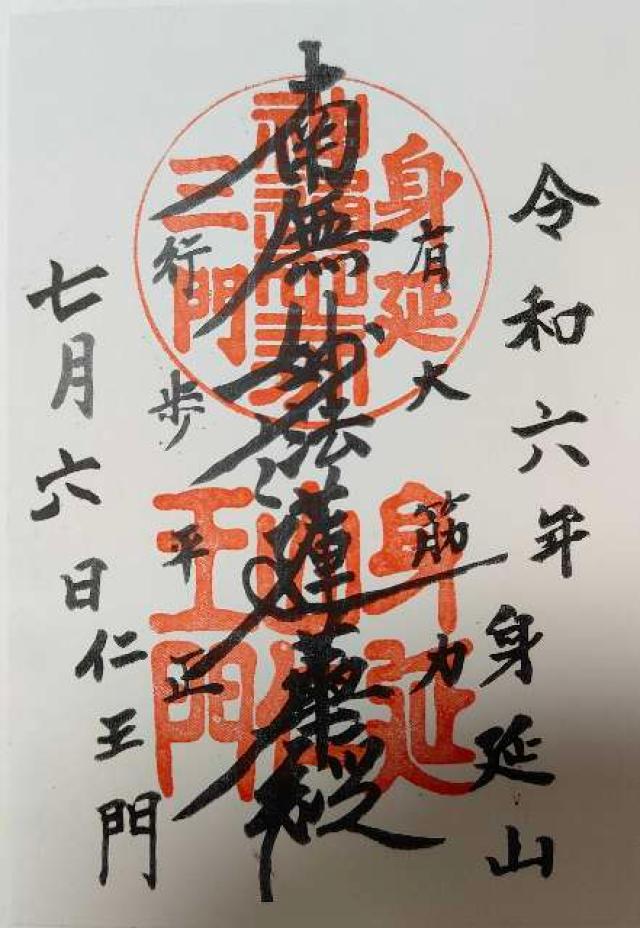 令和六年 身延山
有大筋力
南無妙法蓮華経
行歩平正
七月六日 仁王門
身延
三門
身延
山仁
王門